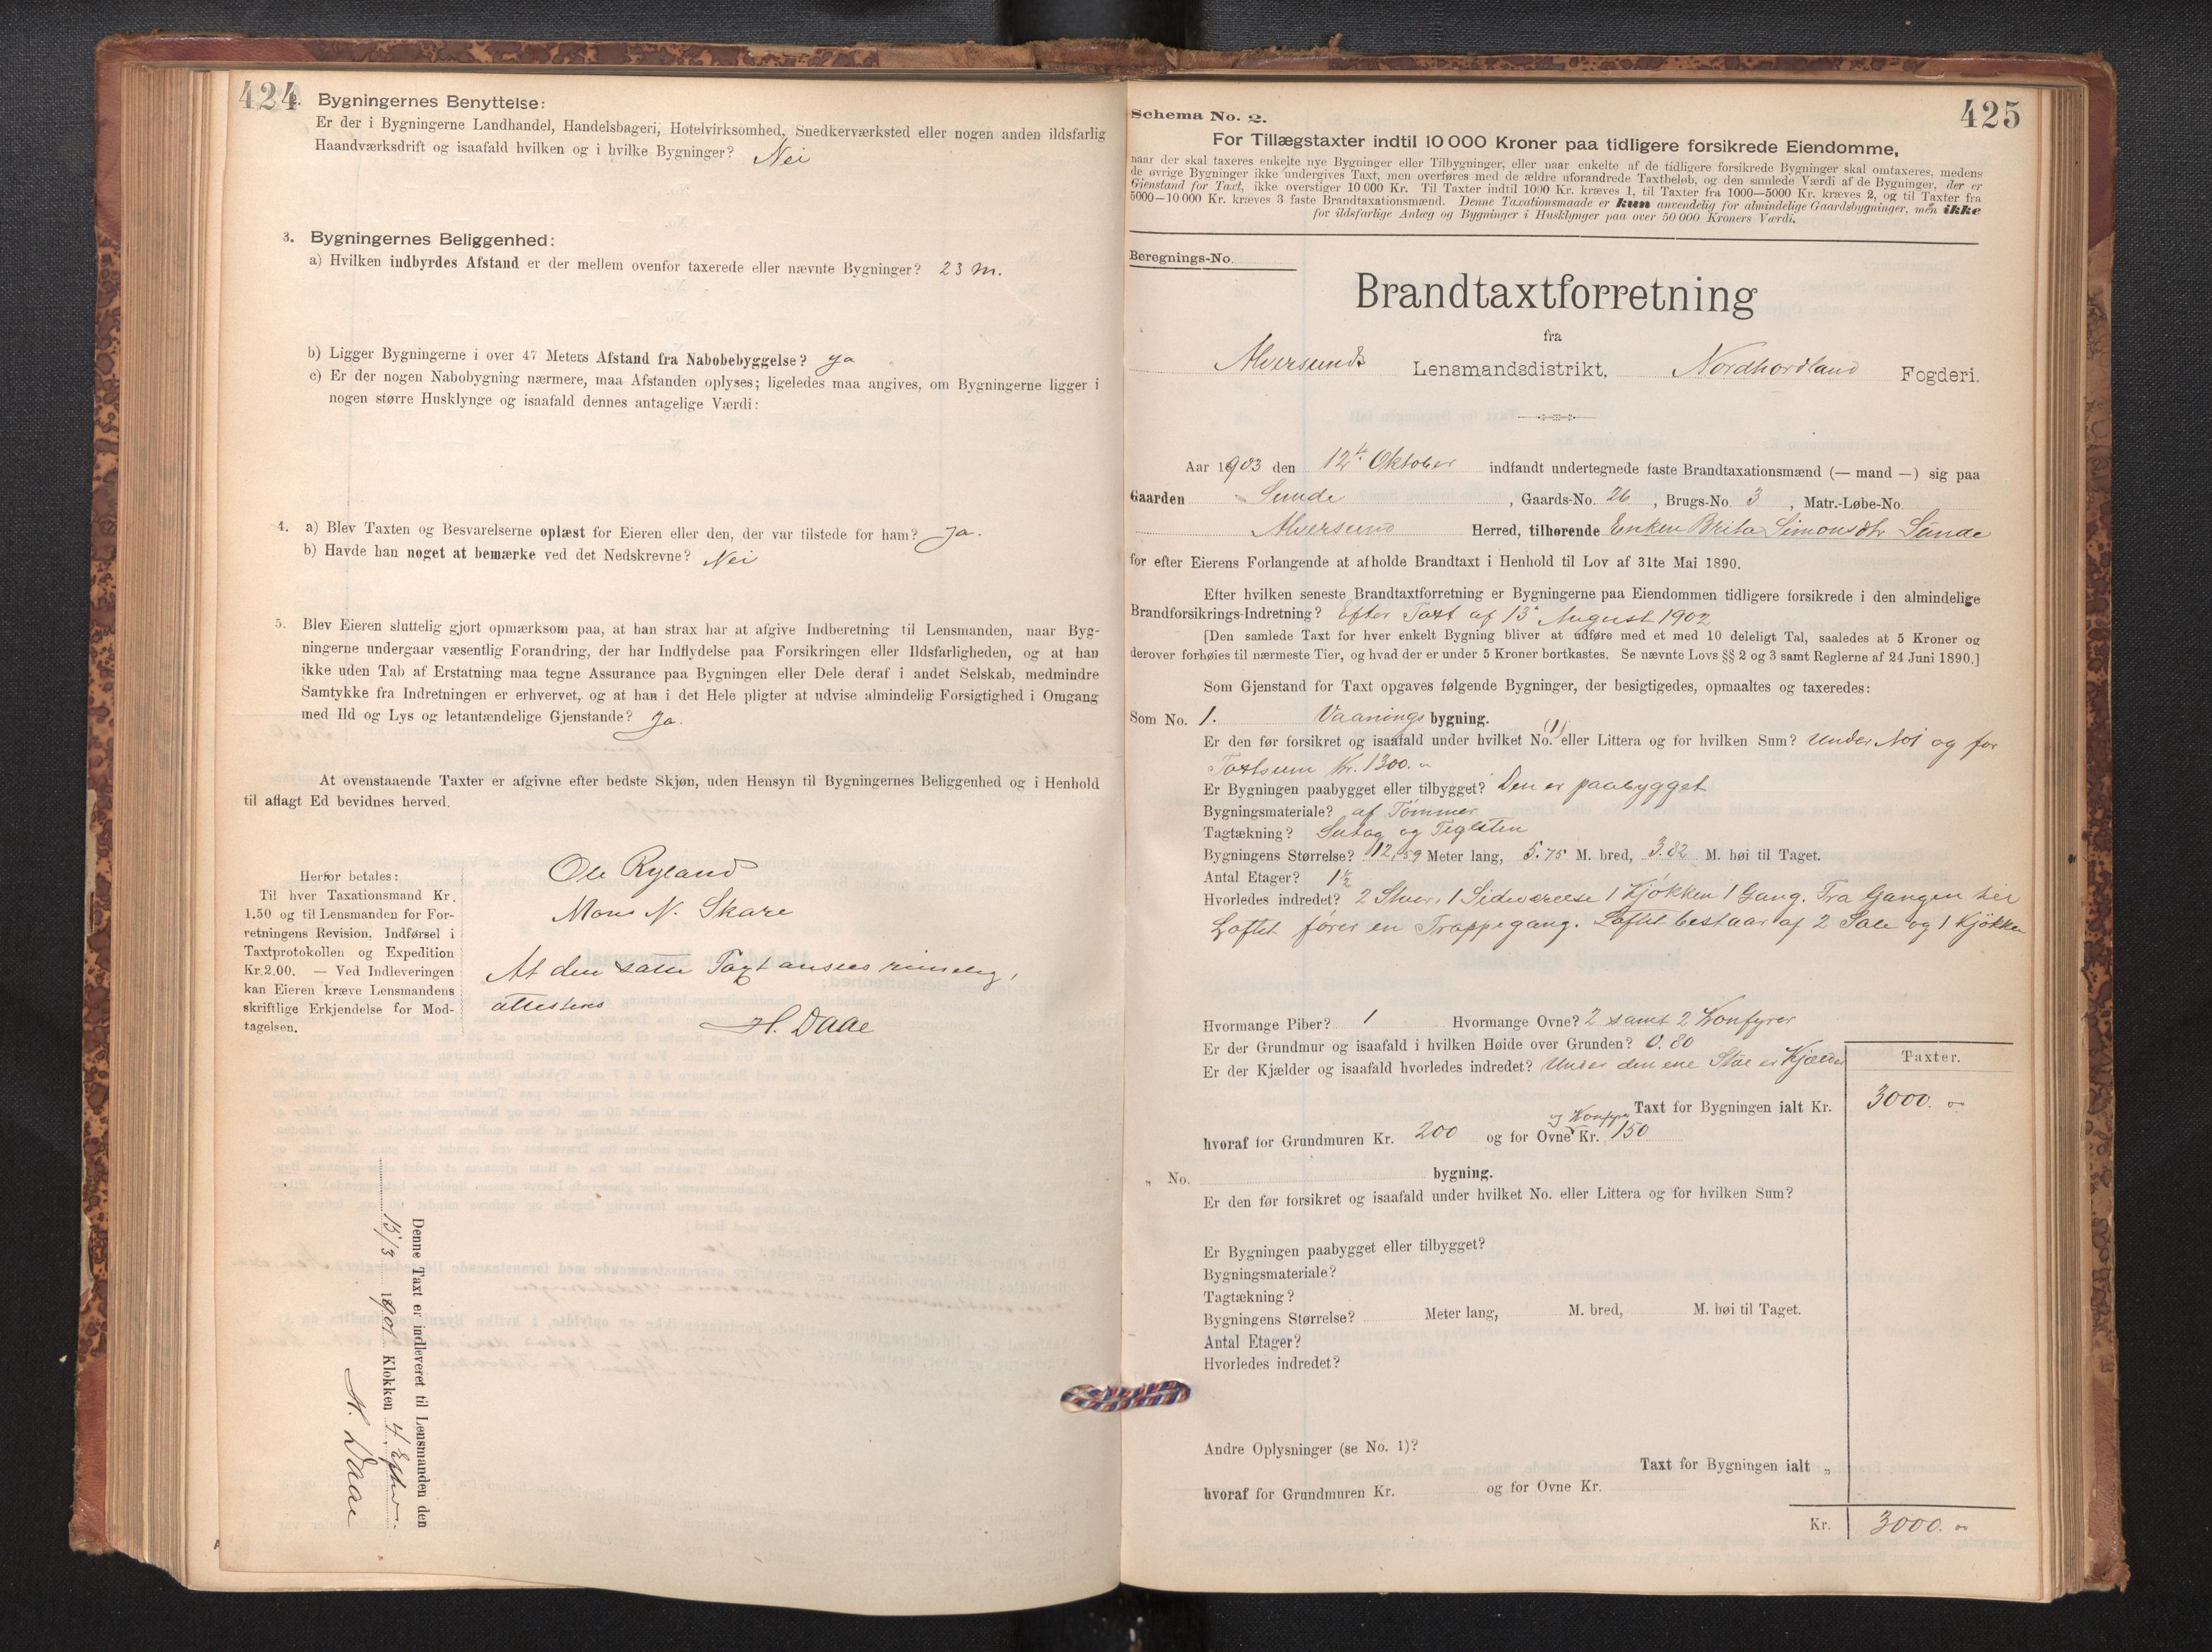 424
2. Bygningernes Benyttelse:
Er der i Bygningerne Landhandel, Handelsbageri, Hotelvirksomhed, Snedkerværksted eller nogen anden ildsfarlig
Haandværksdrift og isaafald hvilken og i hvilke Bygninger? Nei
3. Bygningernes Beliggenhed:
a) Hvilken indbyrdes Afstand er der mellem ovenfor taxerede eller nævnte Bygninger? 23 m.
b) Ligger Bygningerne i over 47 Meters Afstand fra Nabobebyggelse? ja
c) Er der nogen Nabobygning nærmere, maa Afstanden oplyses; ligeledes maa angives, om Bygningerne ligger i
nogen større Husklynge og isaafald dennes antagelige Værdi:
4. a) Blev Taxten og Besvarelserne oplæst for Eieren eller den, der var tilstede for ham? Ja.
b) Havde han noget at bemærke ved det Nedskrevne? Nei
5. Blev Eieren sluttelig gjort opmærksom paa, at han strax har at afgive Indberetning til Lensmanden, naar Byg-
ningerne undergaar væsentlig Forandring, der har Indflydelse paa Forsikringen eller Ildsfarligheden, og at han
ikke uden Tab af Erstatning maa tegne Assurance paa Bygningen eller Dele deraf i andet Selskab, medmindre
Samtykke fra Indretningen er erhvervet, og at han i det Hele pligter at udvise almindelig Forsigtighed i Omgang
med Ild og Lys og letantændelige Gjenstande? Ja.
At ovenstaaende Taxter er afgivne efter bedste Skjøn, uden Hensyn til Bygningernes Beliggenhed og i Henhold
til aflagt Ed bevidnes herved.
Herfor betales:
Til hver Taxationsmand Kr.
1.50 og til Lensmanden for For-
retningens Revision, Indførsel i
Taxtprotokollen og Expedition
Kr. 2.00. — Ved Indleveringen
kan Eieren kræve Lensmandens
skriftlige Erkjendelse for Mod-
tagelsen.
Ole Ryland
Mons N. Skare
At den satte Taxt ansees rimelig,
attesteres
H. Daae
Denne Taxt er indleveret til Lensmanden den
15/3 1901 Klokken 4 Efterm.
H. Daae
425
Schema No. 2.
For Tillægstaxter indtil 10 000 Kroner paa tidligere forsikrede Eiendomme,
naar der skal taxeres enkelte nye Bygninger eller Tilbygninger, eller naar enkelte af de tidligere forsikrede Bygninger skal omtaxeres, medens
de øvrige Bygninger ikke undergives Taxt, men overføres med de ældre uforandrede Taxtbeløb, og den samlede Værdi af de Bygninger, der er
Gjenstand for Taxt, ikke overstiger 10 000 Kr. Til Taxter indtil 1000 Kr. kræves 1, til Taxter fra 1000—5000 Kr. kræves 2, og til Taxter fra
5000—10 000 Kr. kræves 3 faste Brandtaxationsmænd. Denne Taxationsmaade er kun anvendelig for almindelige Gaardsbygninger, men ikke
for ildsfarlige Anlæg og Bygninger i Husklynger paa over 50 000 Kroners Værdi.
Beregnings-No.
Brandtaxtforretning
fra
Alversunds Lensmandsdistrikt, Nordhordland Fogderi.
Aar 1903 den 12te Oktober indfandt undertegnede faste Brandtaxationsmænd (— mand —) sig paa
Gaarden Sunde , Gaards-No. 26 , Brugs-No. 3 , Matr.-Løbe-No.
Alversund Herred, tilhørende Enken Brita Simonsdtr Sunde
for efter Eierens Forlangende at afholde Brandtaxt i Henhold til Lov af 31te Mai 1890.
Efter hvilken seneste Brandtaxtforretning er Bygningerne paa Eiendommen tidligere forsikrede i den almindelige
Brandforsikrings-Indretning? Efter Taxt af 13de August 1902
[Den samlede Taxt for hver enkelt Bygning bliver at udføre med et med 10 deleligt Tal, saaledes at 5 Kroner og
derover forhøies til nærmeste Tier, og hvad der er under 5 Kroner bortkastes. Se nævnte Lovs §§ 2 og 3 samt Reglerne af 24 Juni 1890.]
Som Gjenstand for Taxt opgaves følgende Bygninger, der besigtigedes, opmaaltes og taxeredes:
Som No. 1. Vaanings bygning.
Er den før forsikret og isaafald under hvilket No. (1) eller Littera og for hvilken Sum? Under No 1 og for
Taxtsum Kr. 1300.-
Er Bygningen paabygget eller tilbygget? Den er paabygget
Bygningsmateriale? af Tömmer
Tagtækning? Sutag og Teglsten
Bygningens Størrelse? 12,59 Meter lang, 5.75 M. bred, 3.82 M. høi til Taget.
Antal Etager? 1½
Hvorledes indredet? 2 Stuer, 1 Sideværelse 1 Kjökken 1 Gang. Fra Gangen til
Loftet fører en Trappegang. Loftet bestaar af 2 Sale og 1 Kjökken
Hvormange Piber? 1 Hvormange Ovne? 2 samt 2 Komfyrer
Er der Grundmur og isaafald i hvilken Høide over Grunden? 0.80
Er der Kjælder og isaafald hvorledes indredet? Under den ene Stue er Kjælder
Taxter.
Taxt for Bygningen ialt Kr. 3000.-
hvoraf for Grundmuren Kr. 200 og for Ovne og Komfyr Kr. 150
„ No. bygning.
Er den før forsikret og isaafald under hvilket No. eller Littera og for hvilken Sum?
Er Bygningen paabygget eller tilbygget?
Bygningsmateriale?
Tagtækning?
Bygningens Størrelse? Meter lang, M. bred, M. høi til Taget.
Antal Etager?
Hvorledes indredet?
Andre Oplysninger (se No. 1)?
Taxt for Bygningen ialt „
hvoraf for Grundmuren Kr. og for Ovne Kr.
Kr. 3000.-